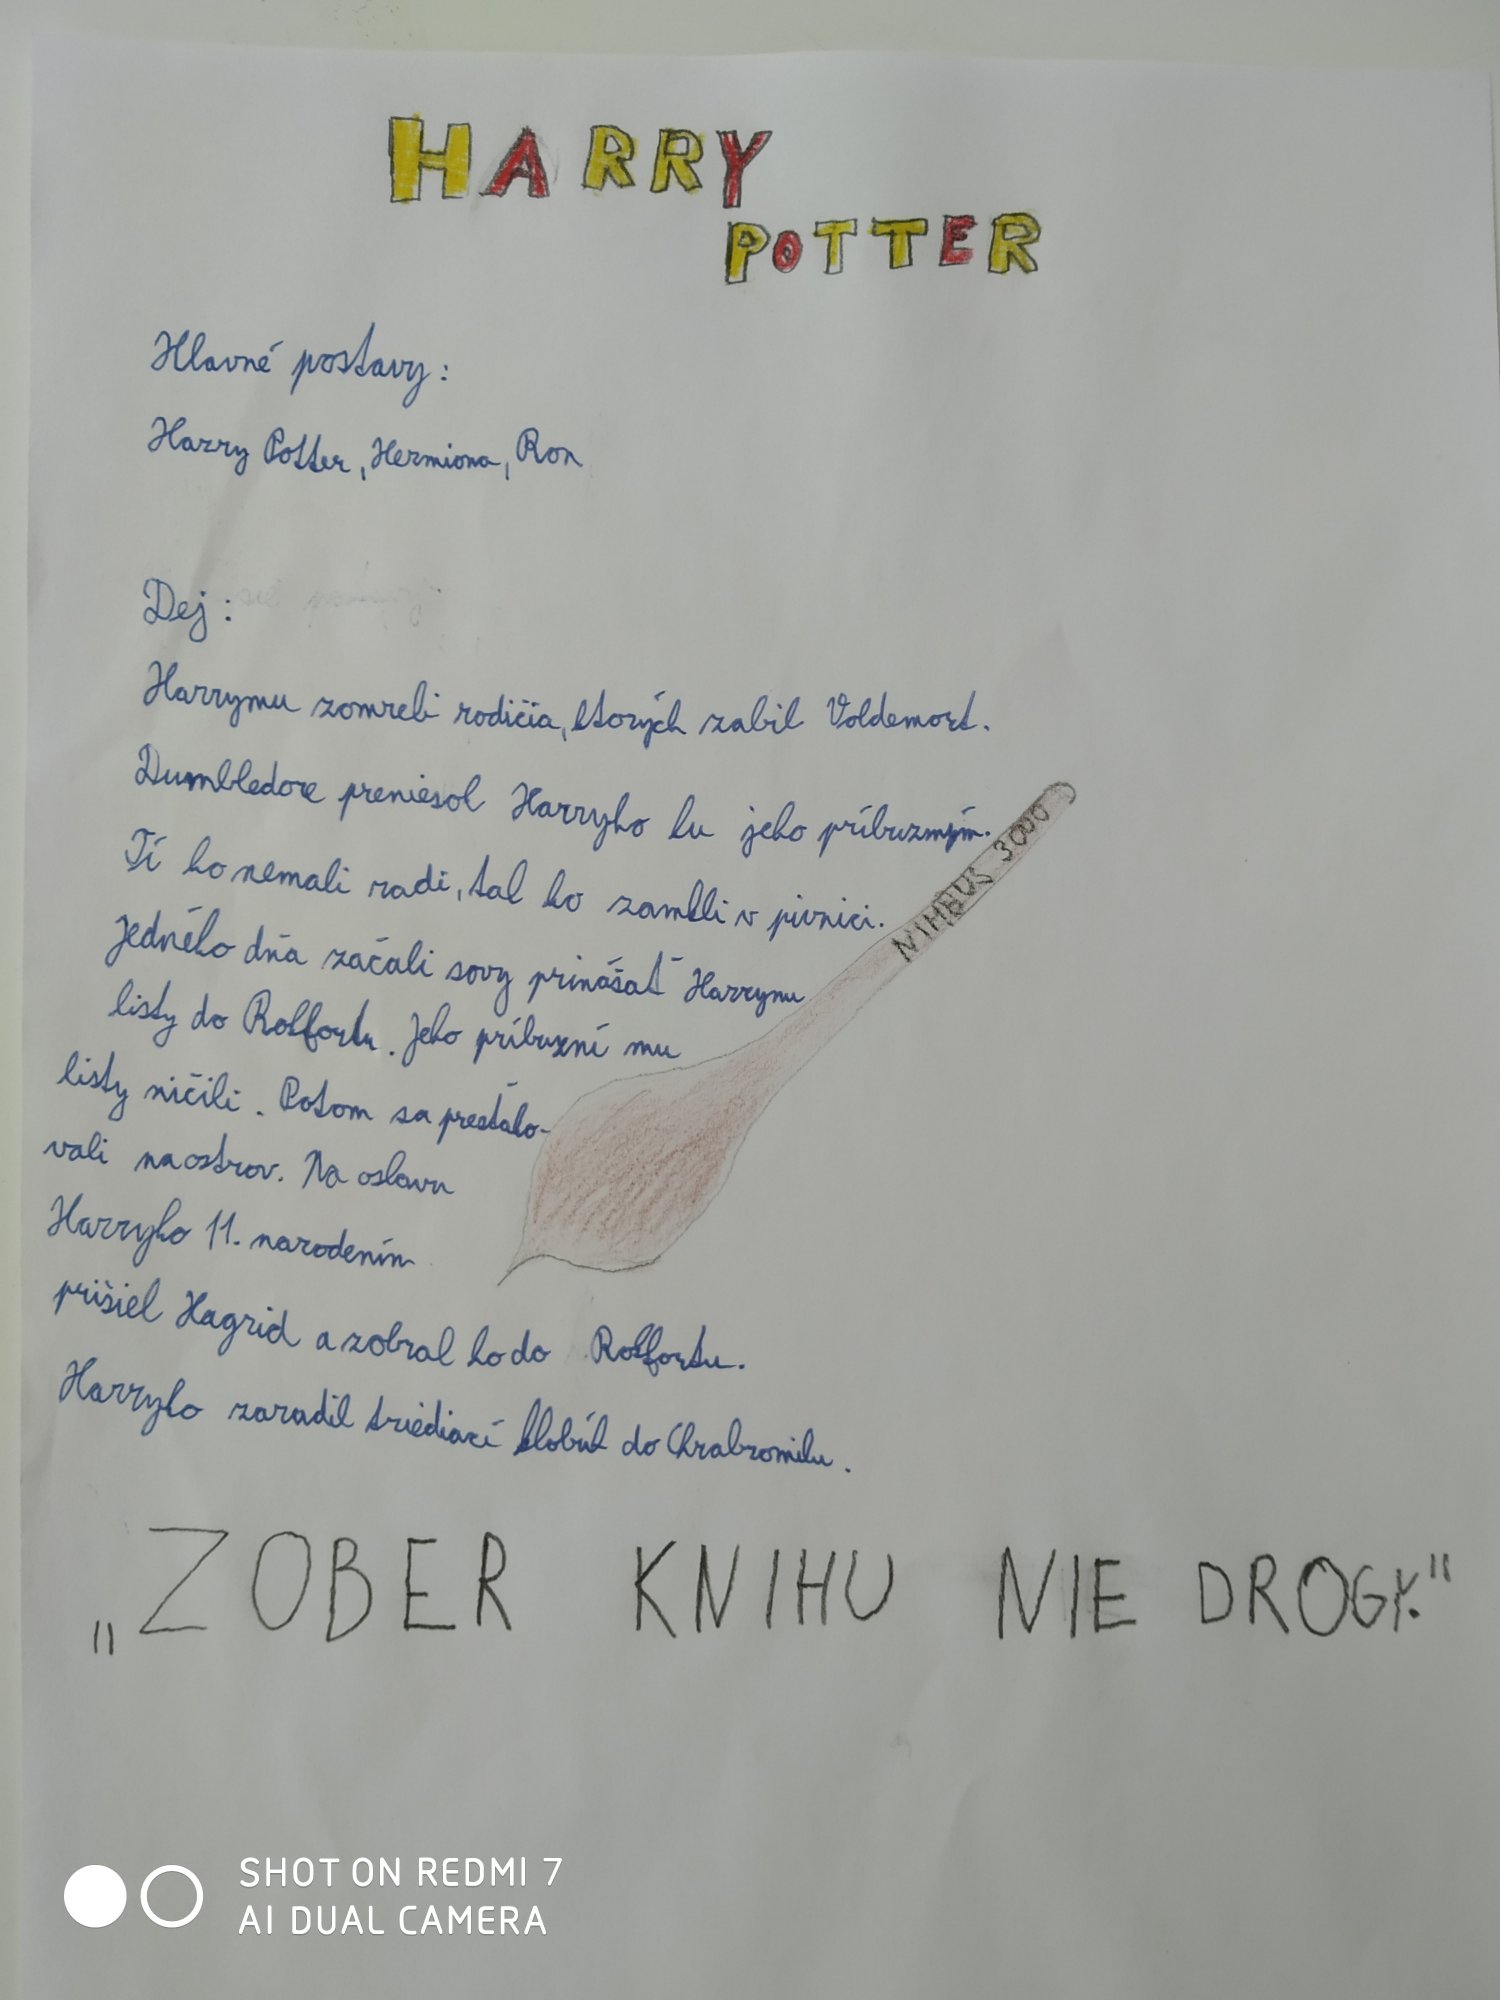 HARRY
POTTER
Hlavné postavy:
Harry Potter, Hermiona, Ron
Dej:
Harrymu zomreli rodičia, ktorých zabil Voldemort.
Dumbledore preniesol Harryho ku jeho príbuzným.
Tí ho nemali radi, tak ho zamkli v pivnici.
Jedného dňa začali sovy prinášať Harrymu
listy do Rokfortu. Jeho príbuzní mu
listy ničili. Potom sa presťaho-
vali na ostrov. Na oslavu
Harryho 11. narodenín
prišiel Hagrid a zobral ho do Rokfortu.
Harryho zaradil triediací klobúk do Chrabromilu.
NIMBUS 3000
„ZOBER KNIHU NIE DROGY."
SHOT ON REDMI 7
AI DUAL CAMERA